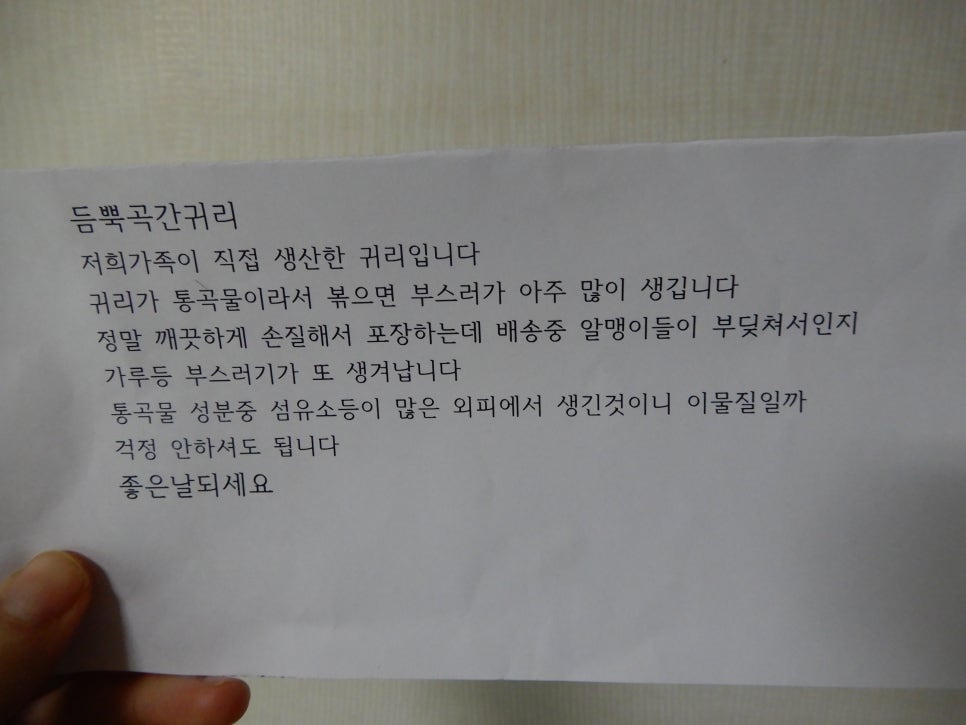 듬뿍곡간귀리
저희가족이 직접 생산한 귀리입니다
귀리가 통곡물이라서 볶으면 부스러가 아주 많이 생깁니다
정말 깨끗하게 손질해서 포장하는데 배송중 알맹이들이 부딪쳐서인지
가루등 부스러기가 또 생겨납니다
통곡물 성분중 섬유소등이 많은 외피에서 생긴것이니 이물질일까
걱정 안하셔도 됩니다
좋은날되세요